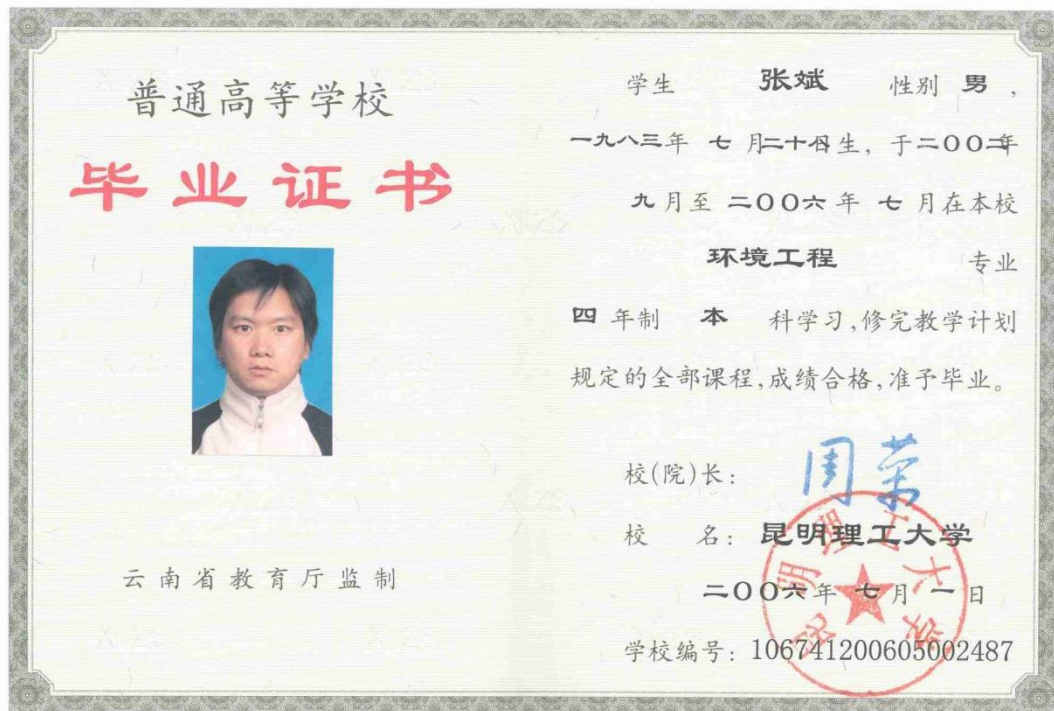 普通高等学校
毕业证书
云南省教育厅监制
学生 张斌 性别 男，
一九八三年 七 月二十 日生，于二〇〇二年
九月至 二〇〇六年 七 月在本校
环境工程 专业
四 年制 本 科学习，修完教学计划
规定的全部课程，成绩合格，准予毕业。
校（院）长：周荣
校 名：昆明理工大学
二〇〇六年 七 月 一 日
学校编号：106741200605002487
昆明理工大学